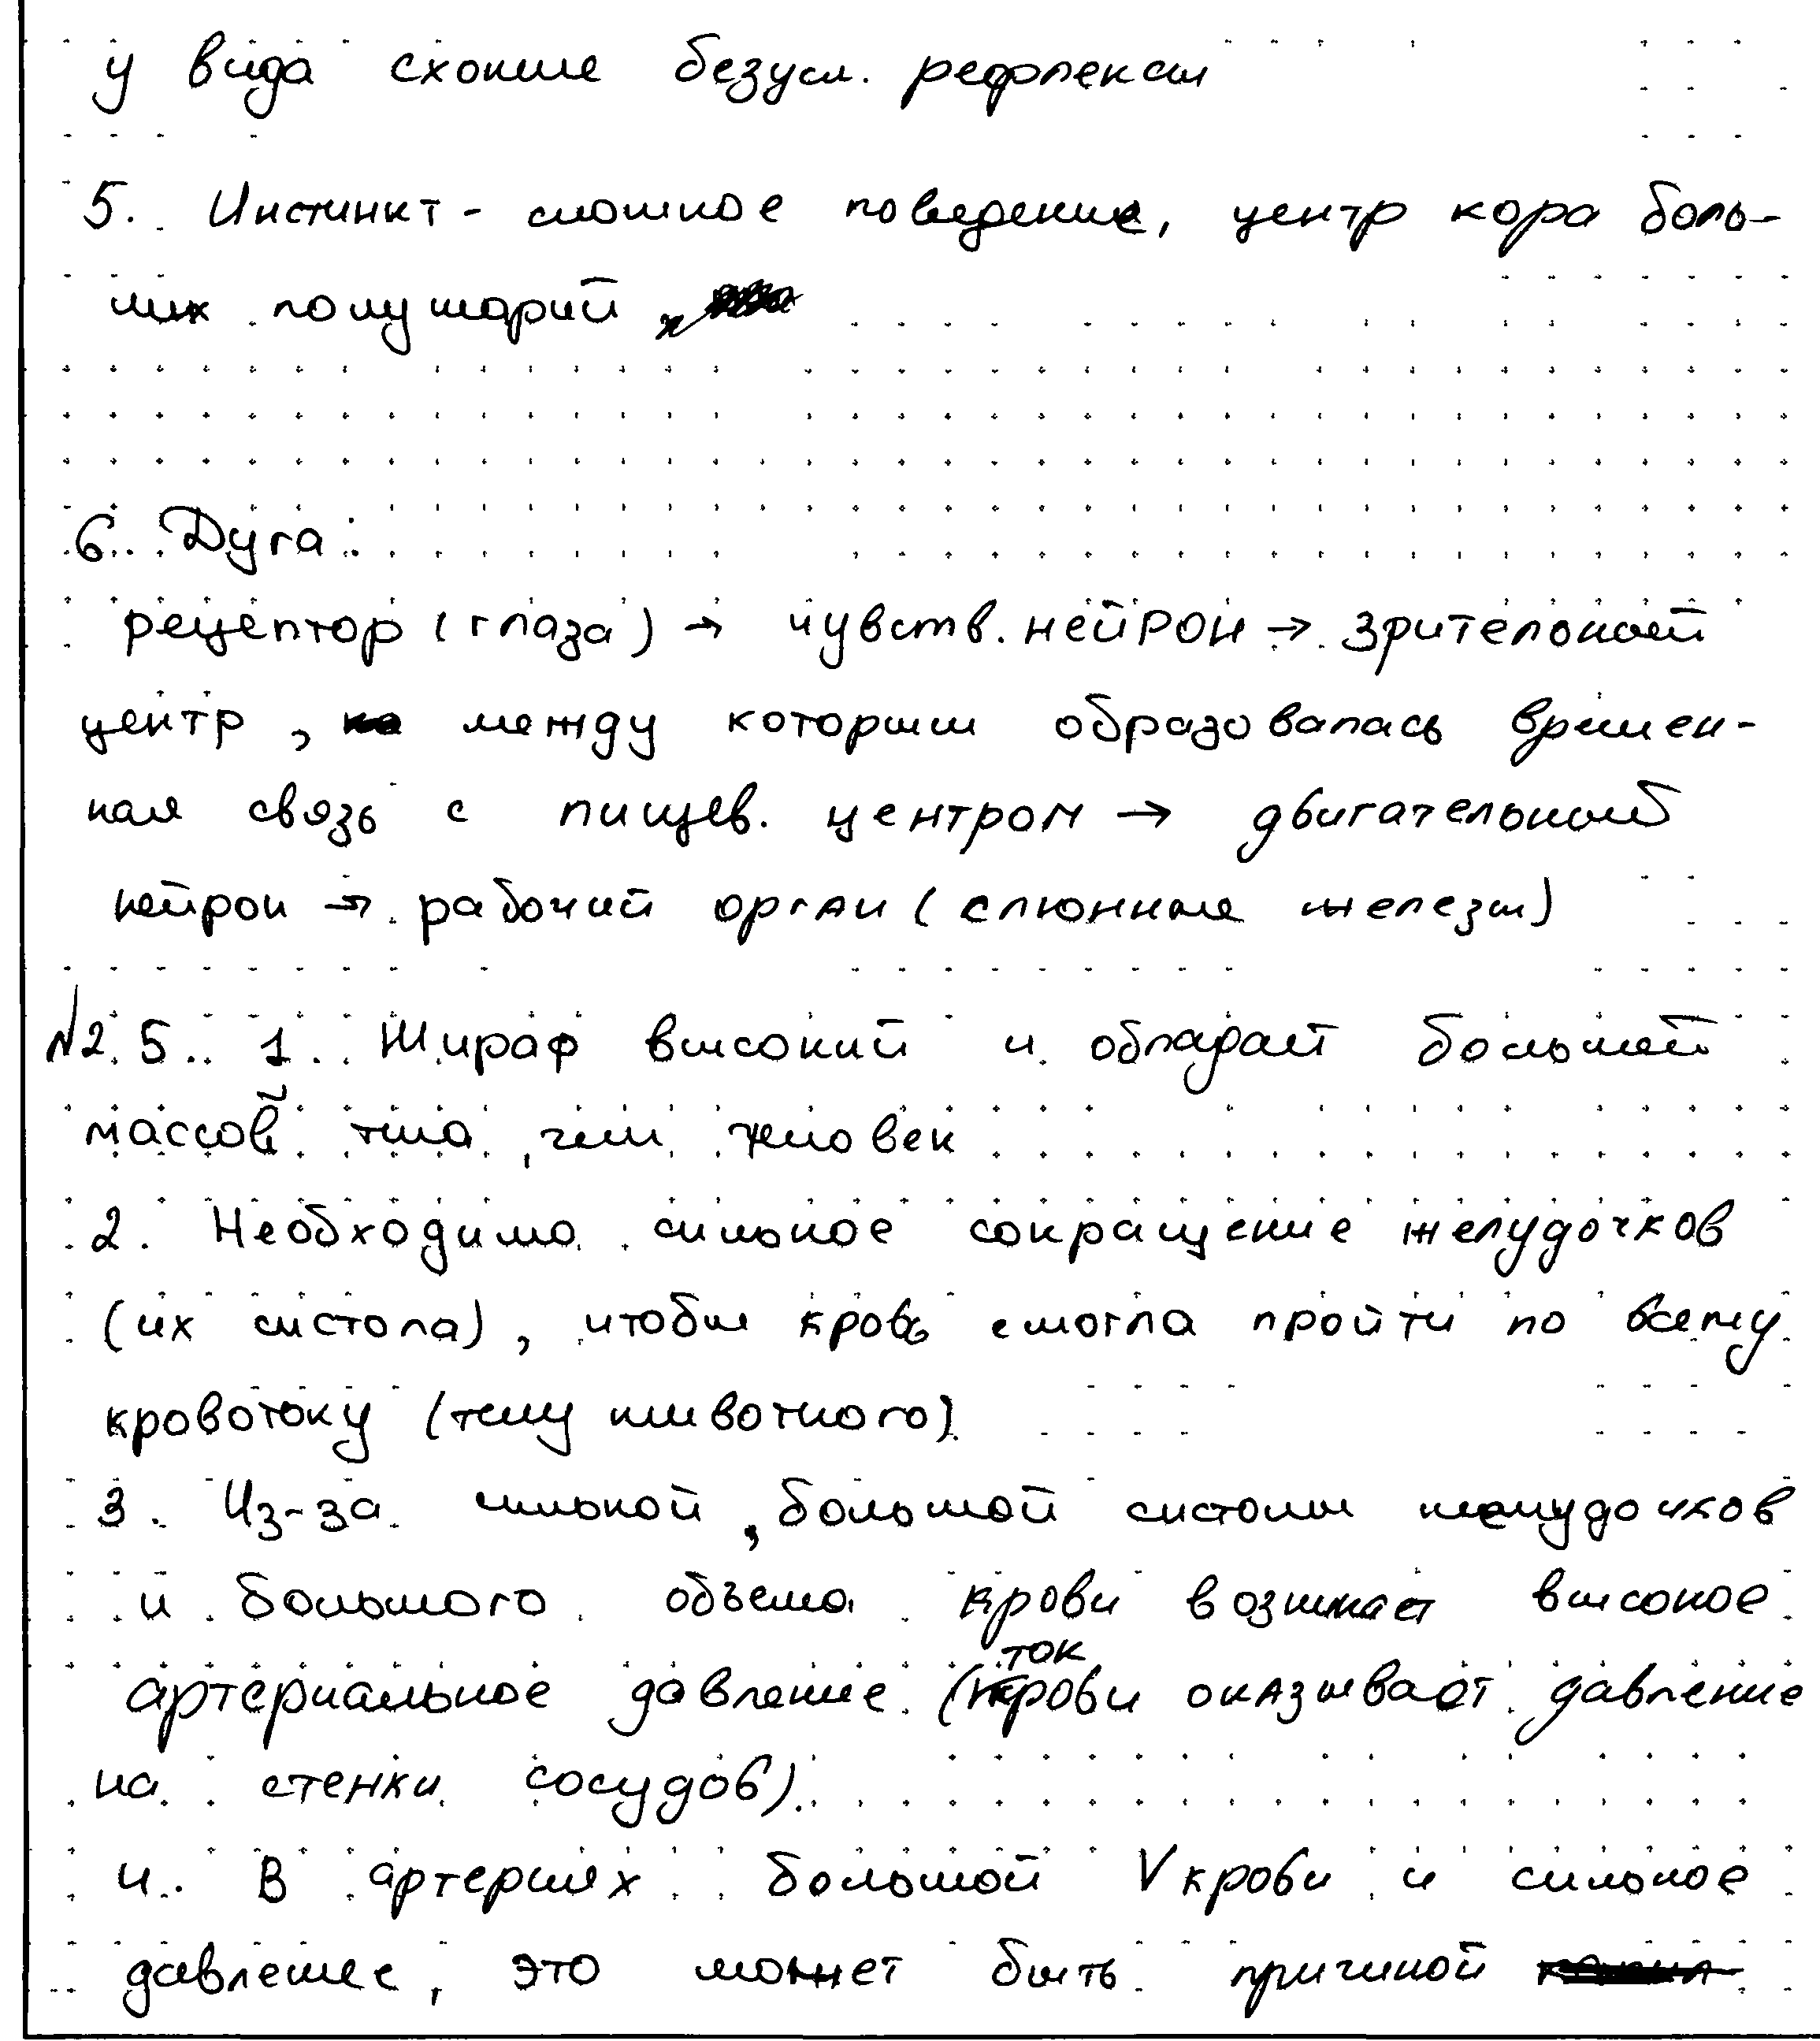 у вида схожие безусл. рефлексы
5. Инстинкт - сложное поведение, центр кора боль-
ших полушарий
6. Дуга:
рецептор (глаза) → чувств. нейрон → зрительный
центр, между которым образовалась времен-
ная связь с пищев. центром → двигательный
нейрон → рабочий орган (слюнные железы)
№25. 1. Жираф высокий и обладает большой
массой тела, чем человек
2. Необходимо сильное сокращение желудочков
(их систола), чтобы кровь смогла пройти по всему
кровотоку (телу животного).
3. Из-за сильной, большой систолы желудочков
и большого объема крови возникает высокое
артериальное давление (ток крови оказывает давление
на стенки сосудов).
4. В артериях большой V крови и сильное
давление, это может быть причиной